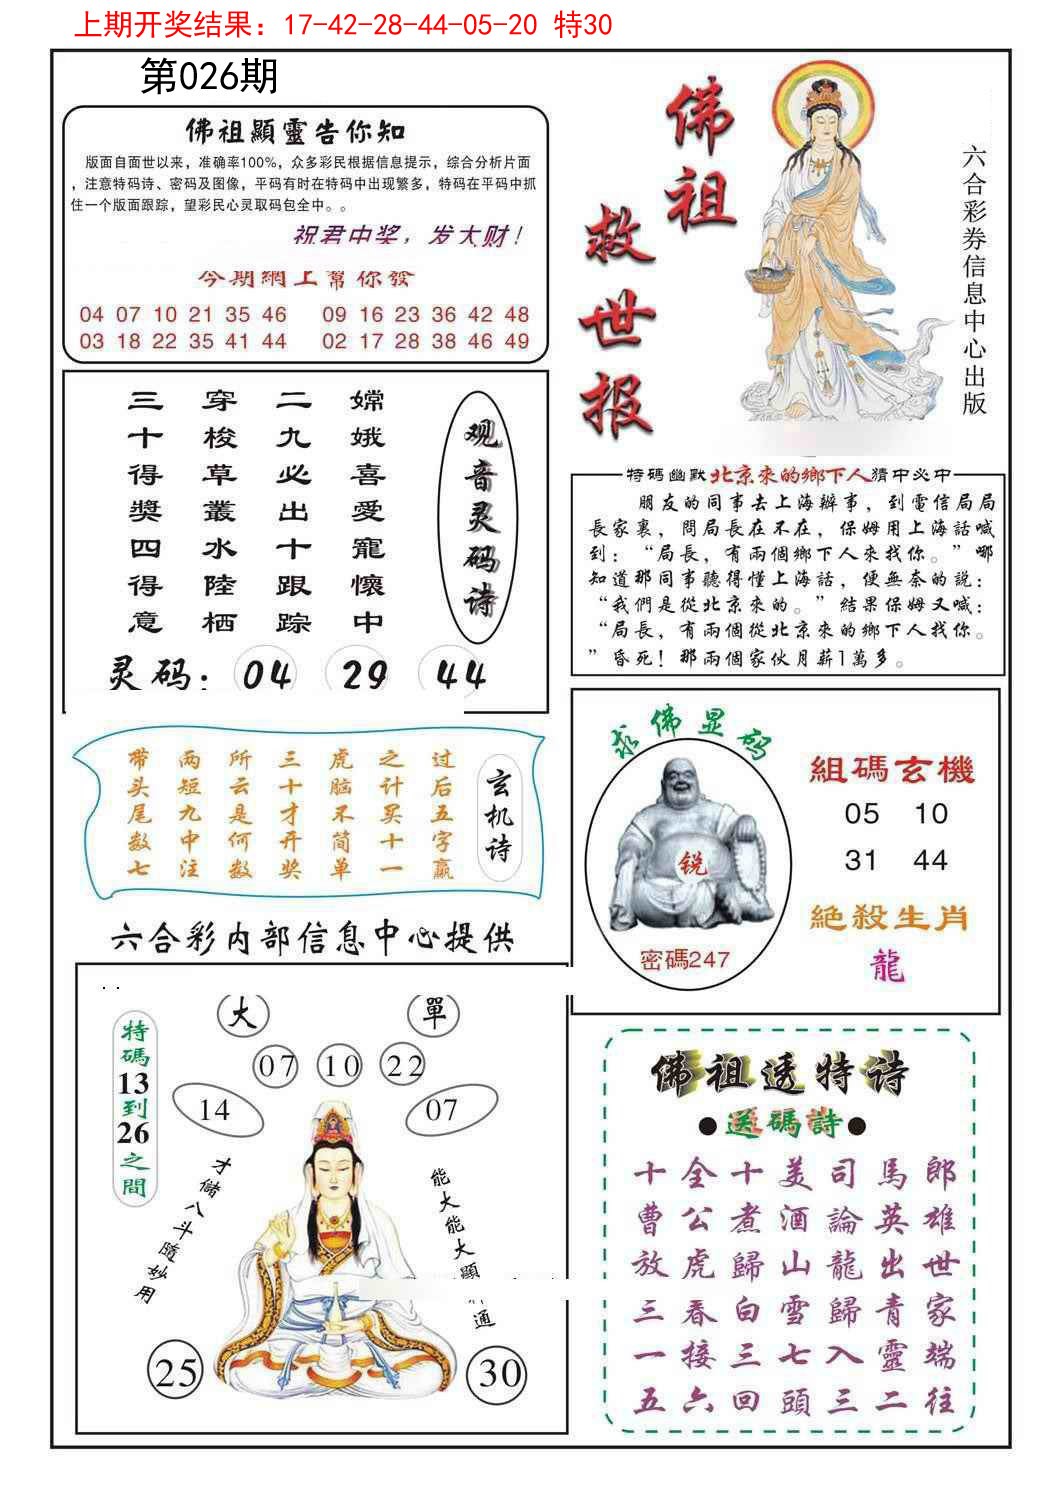 上期开奖结果：17-42-28-44-05-20 特30
第026期
佛祖顯靈告你知
版面自面世以来，准确率100%，众多彩民根据信息提示，综合分析片面
，注意特码诗、密码及图像，平码有时在特码中出现繁多，特码在平码中抓
住一个版面跟踪，望彩民心灵取码包全中。。
祝君中奖，发大财！
今期網上幫你發
04 07 10 21 35 46 09 16 23 36 42 48
03 18 22 35 41 44 02 17 28 38 46 49
佛祖
救世报
六合彩券信息中心出版
观音灵码诗
嫦娥喜愛寵懷中
二九必出十跟踪
穿梭草叢水陸栖
三十得獎四得意
灵码：04 29 44
特碼幽默北京來的鄉下人猜中必中
朋友的同事去上海辦事，到電信局局
長家裏，問局長在不在，保姆用上海話喊
到：“局長，有兩個鄉下人來找你。”哪
知道那同事聽得懂上海話，便無奈的説：
“我們是從北京來的。”結果保姆又喊：
“局長，有兩個從北京來的鄉下人找你。
”昏死！那兩個家伙月薪1萬多。
玄机诗
过后五字赢
之计买十一
虎脑不简单
三十才开奖
所云是何数
两短九中注
带头尾数七
求佛显码
锐
密碼247
組碼玄機
05 10
31 44
絕殺生肖
龍
六合彩内部信息中心提供
大 單
07 10 22
14 07
特碼13到26之間
才儲八斗隨妙用
能大能大顯 通
25 30
佛祖透特诗
●送碼詩●
十全十美司馬郎
曹公煮酒論英雄
放虎歸山龍出世
三春白雪歸青家
一接三七入靈端
五六回頭三二往